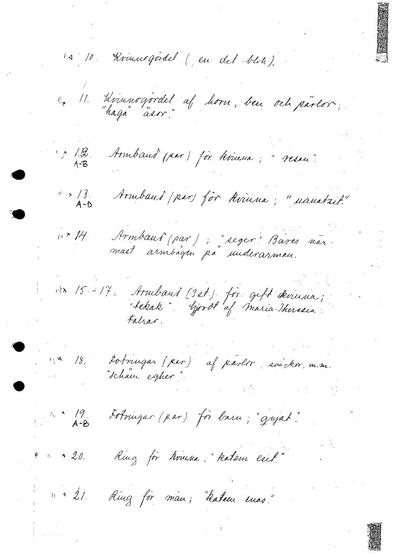 10. Kvinnogördel (en del blok).
11. Kvinnogördel af horn, ben och pärlor;
"haga" äsor."
12. Armband (par) för kvinna; "resan".
A-B
13. Armband (par) för kvinna;
A-D
14. Armband (par); "seger". Bäres när-
mast armbågen på underarman.
15.-17. Armband (3st) för gift kvinna;
"bekak". Gjordt af Maria-Theresia
talrar.
18. Fotringar (par) af pärlor, snäckor, m.m.
"schäm egher".
19. Fotringar (par) för barn; "gujat".
A-B
20. Ring för kvinna; "katem esit"
21. Ring för män; "katem enas."